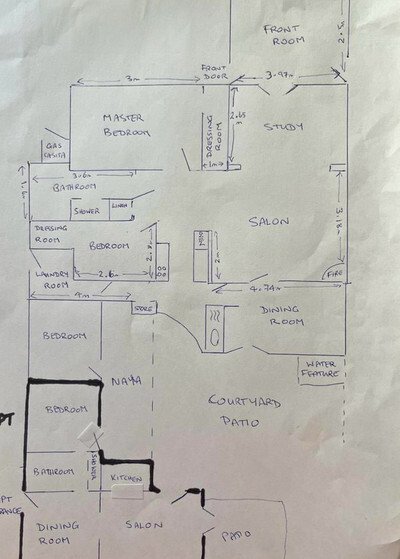 FRONT
ROOM
2.5m
3m
FRONT
DOOR
3.97m
MASTER
BEDROOM
DRESSING
ROOM
2.65
m
1m
STUDY
GAS
3.6m
BATHROOM
SHOWER
LINEN
SALON
3.18m
DRESSING
ROOM
BEDROOM
2.6m
2m
LAUNDRY
ROOM
4m
4.74m
FIRE
STORE
DINING
ROOM
BEDROOM
WATER
FEATURE
NAYA
BEDROOM
COURTYARD
PATIO
PT
BATHROOM
SHOWER
KITCHEN
PT
RANCE
DINING
ROOM
SALON
PATIO